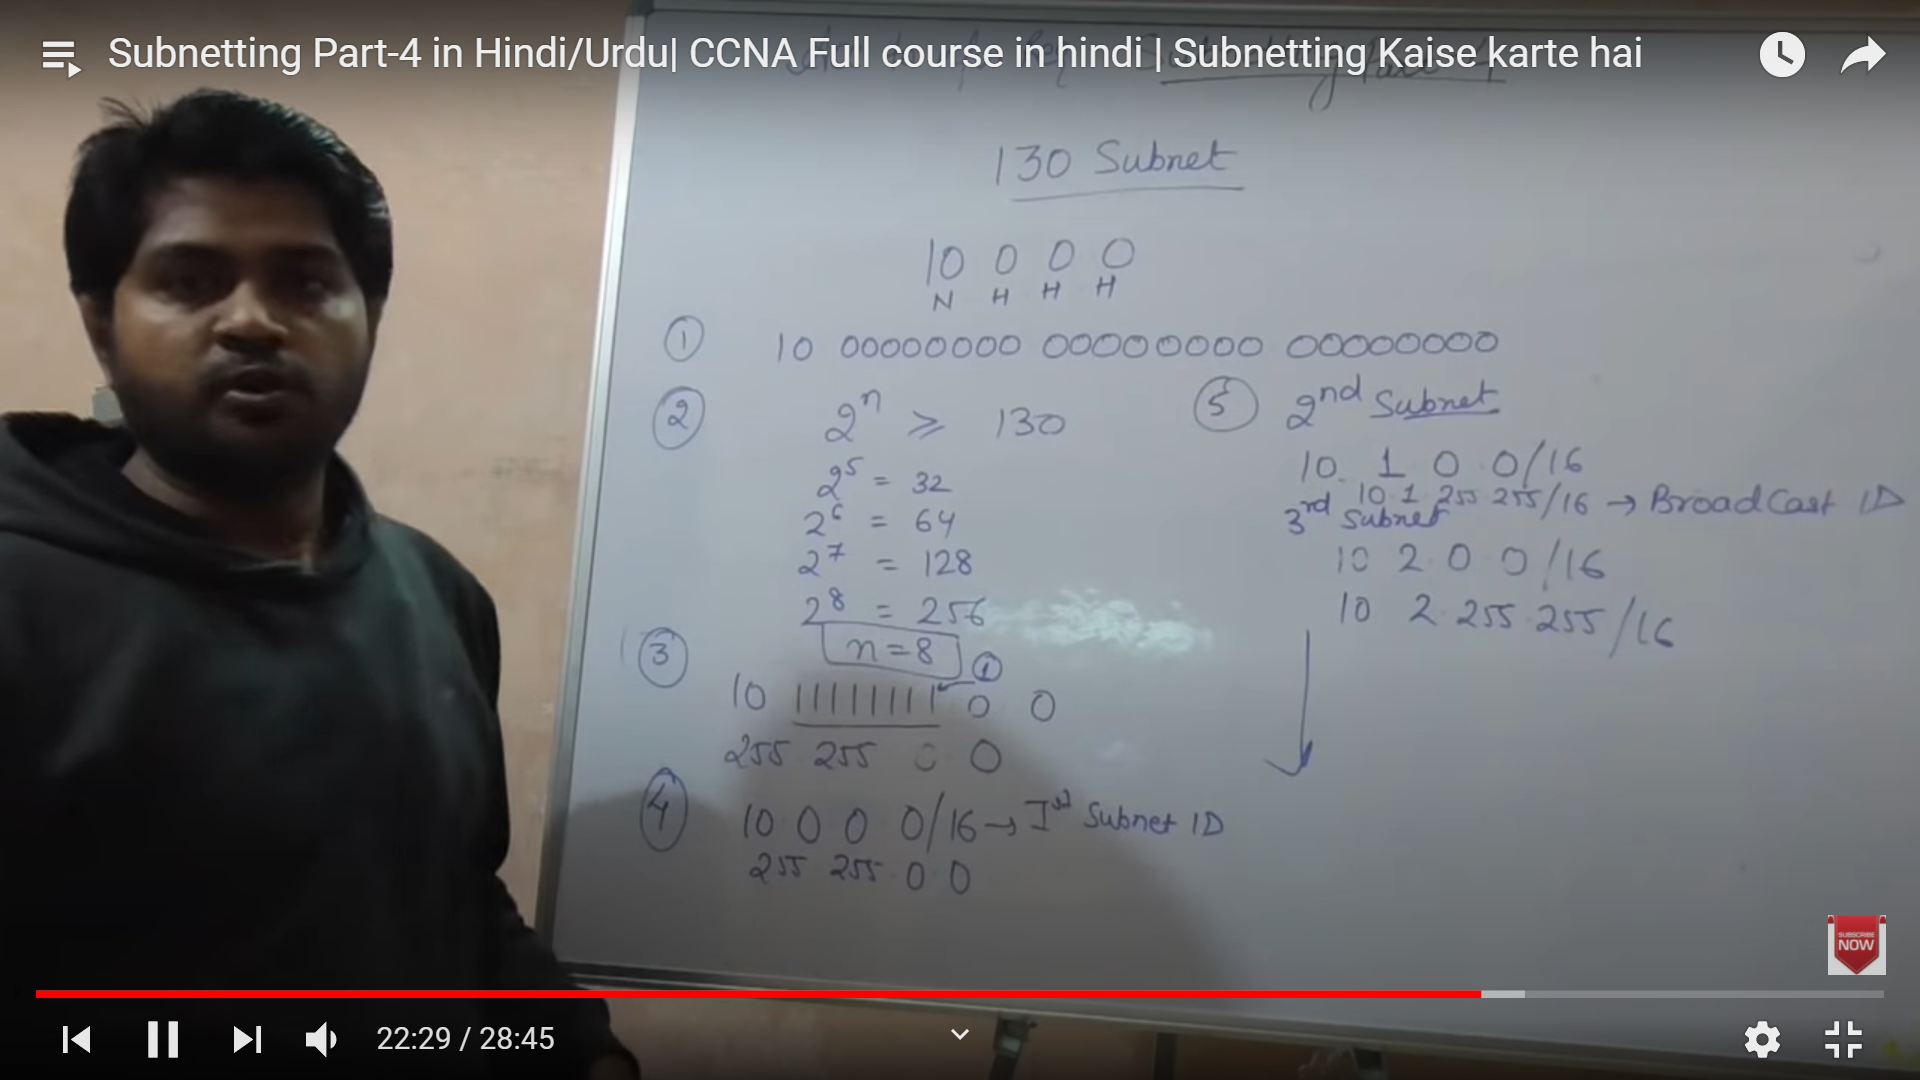 Subnetting Part-4 in Hindi/Urdu| CCNA Full course in hindi | Subnetting Kaise karte hai
130 Subnet
10 0 0 0
N H H H
① 10 00000000 00000000 00000000
② 2ⁿ ≥ 130
2⁵ = 32
2⁶ = 64
2⁷ = 128
2⁸ = 256
n=8
③ ①
10 11111111 0 0
255 255 0 0
④ 10 0 0 0/16 → Ist Subnet ID
255 255 0 0
⑤ 2nd Subnet
10. 1 0 0/16
10 1 255 255/16 → BroadCast ID
3rd Subnet
10 2 0 0/16
10 2 255 255/16
SUBSCRIBE
NOW
22:29 / 28:45